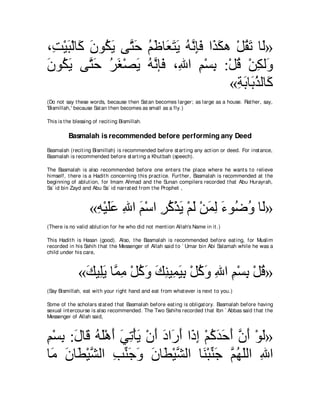 «لَا تَقُلْ هٰكَذَا فَإِنَّهُ يَتَعَاظَمُ حَتَّى يَكُونَ كَالْبَيْتِ،
وَلَكِنْ قُلْ: بِسْمِ اللهِ، فَإِنَّهُ يَصْغُرُ حَتَّى يَكُونَ
كَالذُّبَابَةِ»
(Do not say these words, because then Satan becomes larger; as large as a house. Rather, say,
'Bismillah,' because Satan then becomes as small as a fly.)
This is the blessing of reciting Bismillah.
Basmalah is recommended before performing any Deed
Basmalah (reciting Bismillah) is recommended before starting any action or deed. For instance,
Basmalah is recommended before starting a Khutbah (speech).
The Basmalah is also recommended before one enters the place where he wants to relieve
himself, there is a Hadith concerning this practice. Further, Basmalah is recommended at the
beginning of ablution, for Imam Ahmad and the Sunan compilers recorded that Abu Hurayrah,
Sa`id bin Zayd and Abu Sa`id narrated from the Prophet ,
«لَا وُضُوءَ لِمَنْ لَمْ يَذْكُرِ اسْمَ اللهِ عَلَيْهِ»
(There is no valid ablution for he who did not mention Allah's Name in it.)
This Hadith is Hasan (good). Also, the Basmalah is recommended before eating, for Muslim
recorded in his Sahih that the Messenger of Allah said to `Umar bin Abi Salamah while he was a
child under his care,
«قُلْ بِسْمِ اللهِ وَكُلْ بِيَمِينِكَ وَكُلْ مِمَّا يَلِيكَ»
(Say Bismillah, eat with your right hand and eat from whatever is next to you.)
Some of the scholars stated that Basmalah before eating is obligatory. Basmalah before having
sexual intercourse is also recommended. The Two Sahihs recorded that Ibn `Abbas said that the
Messenger of Allah said,
«لَوْ أَنَّ أَحَدَكُمْ إِذَا أَرَادَ أَنْ يَأْتِيَ أَهْلَهُ قَالَ: بِسْمِ
اللهِ اللَّهُمَّ جَنِّبْنَا الشَّيْطَانَ وَجَنِّبِ الشَّيْطَانَ مَا